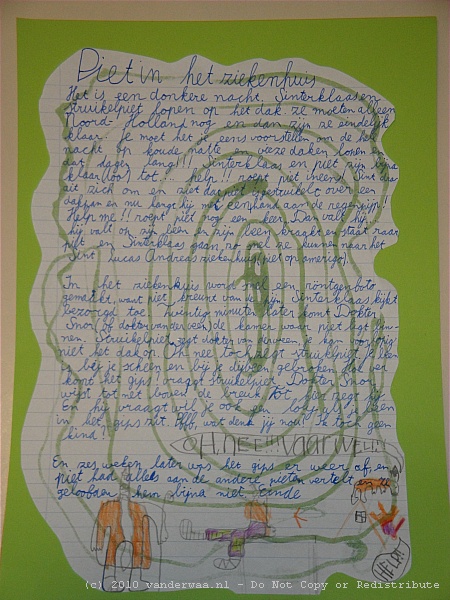 Piet in het ziekenhuis
Het is een donkere nacht. Sinterklaas en
struikelpiet lopen op het dak. ze moeten alleen
Noord-Holland nog en dan zijn ze eindelijk
klaar. Je moet het je eens voorstellen om de hele
nacht op koude natte en vieze daken lopen en
dat dagen lang!!! Sinterklaas en piet zijn bijna
klaar tot: help!! roept piet ineens! Sint draait
zich om en ziet dat piet is gestruikelt over een
dakpan en nu hangt hij met een hand aan de regenpijp!
Help me!! roept piet nog een keer. Dan valt hij.
hij valt op zijn been en zijn been kraakt en staat raar
Sinterklaas gaan zo snel ze kunnen naar het
Sint Lucas Andreas ziekenhuis (piet op amerigo).
In het ziekenhuis word snel een röntgenfoto
gemaakt, want piet kreunt van de pijn. Sinterklaas kijkt
bezorgd toe. twintig minuten later komt Dokter
Snor de kamer waar piet ligt binnen
nen. Struikelpiet, zegt dokter je kan voorlopig
niet het dak op. Oh nee toch zegt struikelpiet. Je been
is bij je scheen en bij je dijbeen gebroken dus
komt het gips? vraagt struikelpiet. Dokter Snor
wijst tot net boven de breuk. Tot hier zegt hij
En hij vraagt wil je ook een lolly als je been
in het gips zit. Pfff, wat denk jij nou! Ik ben toch geen
kind!
OH NEE!!! vaarwel!!!
En zes weken later was het gips er weer af en
piet had alles aan de andere pieten vertelt
geloofden hem bijna niet Einde
HELP!
(c) 2010 vanderwaa.nl - Do Not Copy or Redistribute